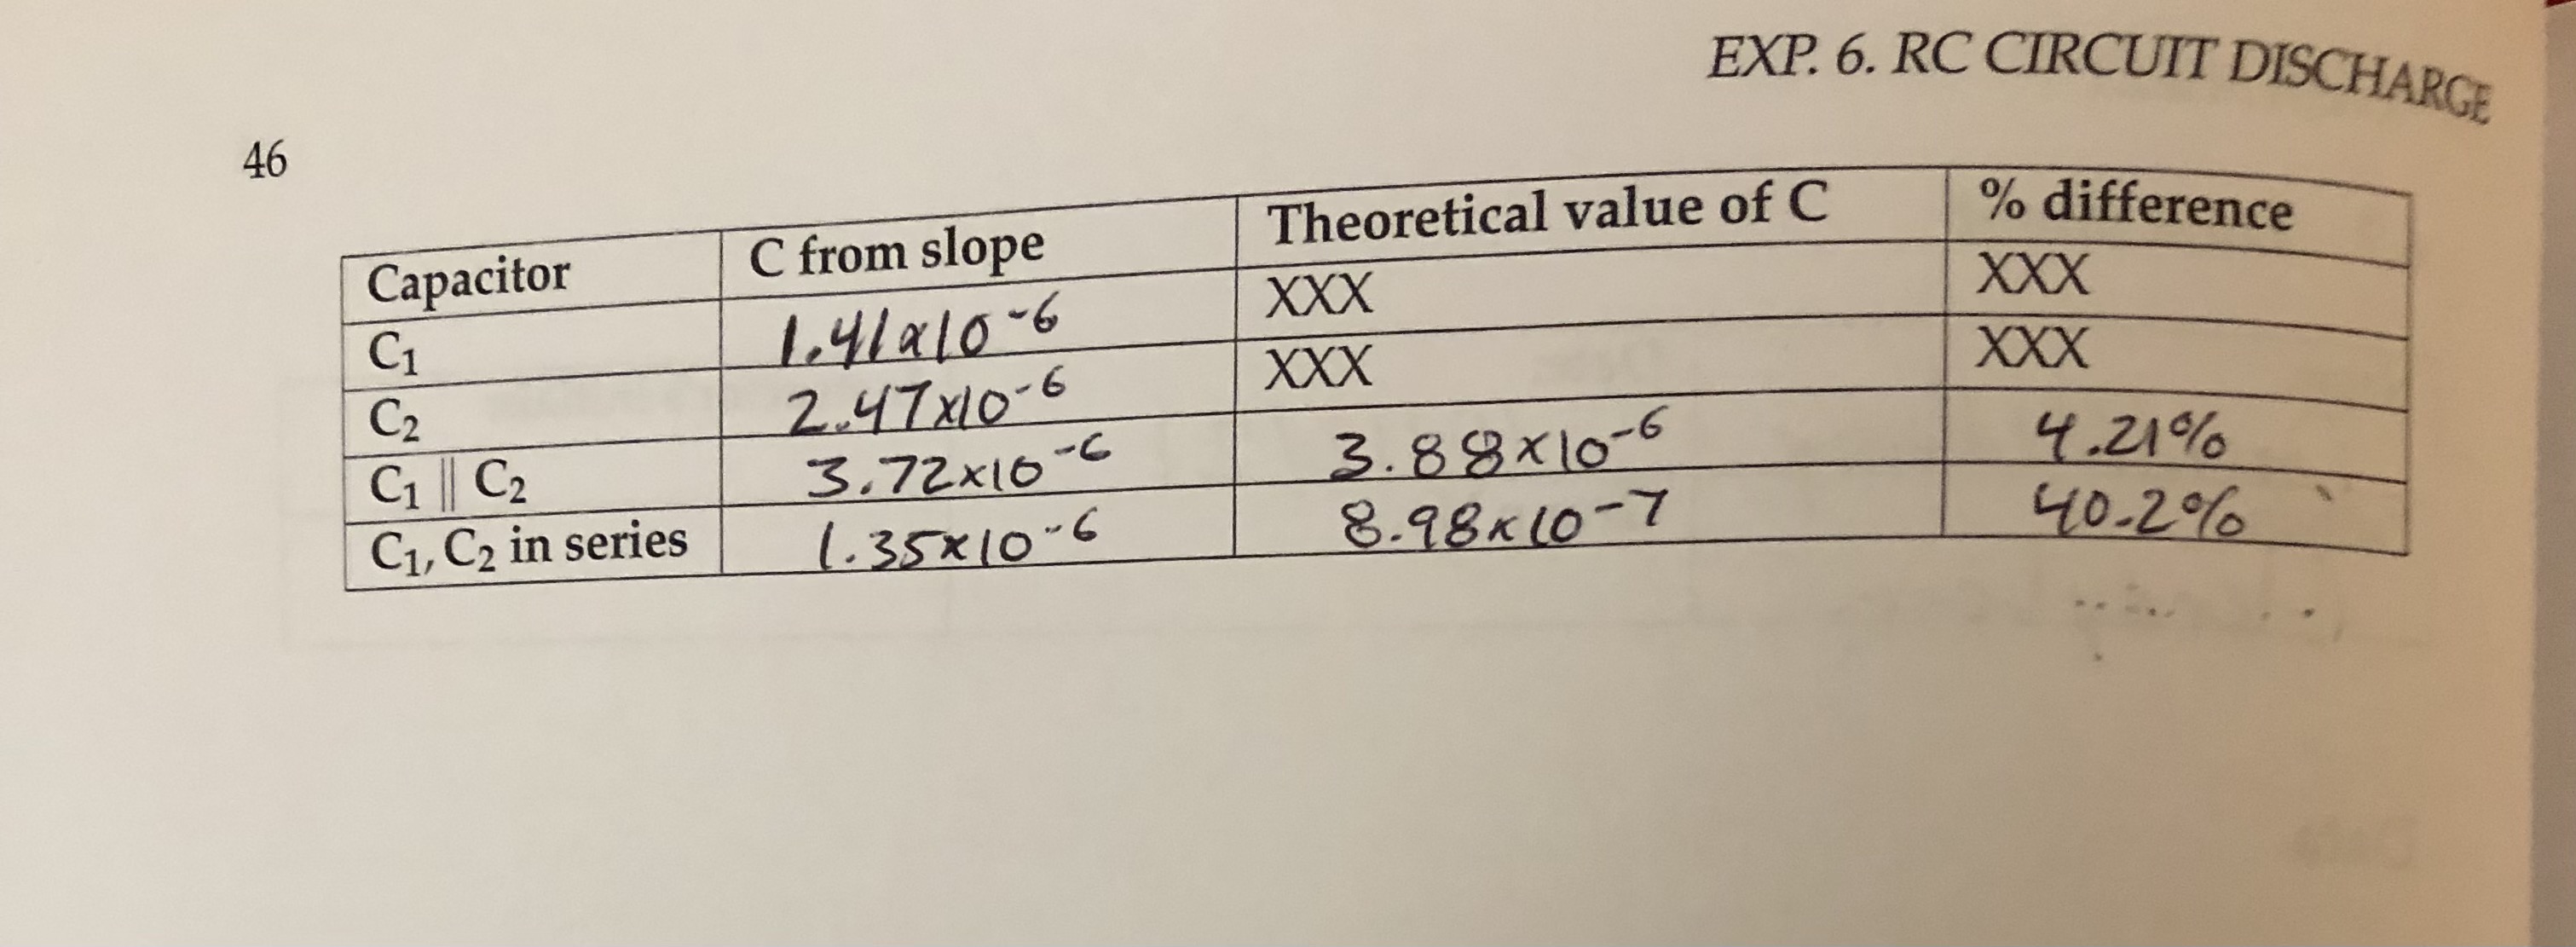 EXP. 6. RC CIRCUIT DISCHARGE
46
Capacitor C from slope Theoretical value of C % difference
C₁ 1.41x10⁻⁶ XXX XXX
C₂ 2.47x10⁻⁶ XXX XXX
C₁ || C₂ 3.72x10⁻⁶ 3.88x10⁻⁶ 4.21%
C₁, C₂ in series 1.35x10⁻⁶ 8.98x10⁻⁷ 40.2%